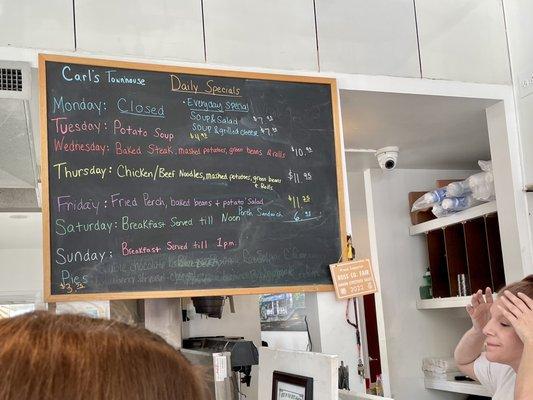 Carl's Townhouse
Daily Specials
Monday: Closed
• Everyday Special
Soup & Salad $7
Soup & grilled cheese $7
Tuesday: Potato Soup $4
Wednesday: Baked Steak, mashed potatoes, green beans & Rolls $10.95
Thursday: Chicken/Beef Noodles, Mashed potatoes, green beans & Rolls $11.95
Friday: Fried Perch, baked beans & potato Salad $11
Perch Sandwich 6
Saturday: Breakfast Served till Noon
Sunday: Breakfast Served till 1pm.
Pies
$3
ROSS CO. FAIR
2022